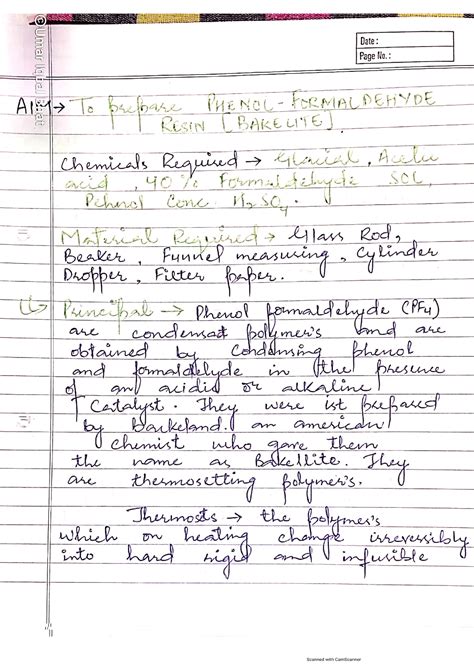 Date :
Page No. :
© Umar Iqba
AIM → To prepare PHENOL - FORMALDEHYDE
RESIN [BAKELITE]
Chemicals Required → Glacial, Acetic
acid, 40% Formaldehyde SOL
Pehenol Conc H₂SO₄.
Material Required → Glass Rod,
Beaker, Funnel measuring, Cylinder
Dropper, Filter paper.
Principal → Phenol formaldehyde (PFu)
are condensat polymer's and are
obtained by condensing phenol
and formaldehyde in the presence
of an acidic or alkaline
Catalyst. They were ist prepared
by backeland. an american
Chemist who gave them
the name as Bakellite. They
are thermosetting polymer's.
Thermosts → the polymer's
which on heating change irreversibly
into hard rigid and infusible
Scanned with CamScanner